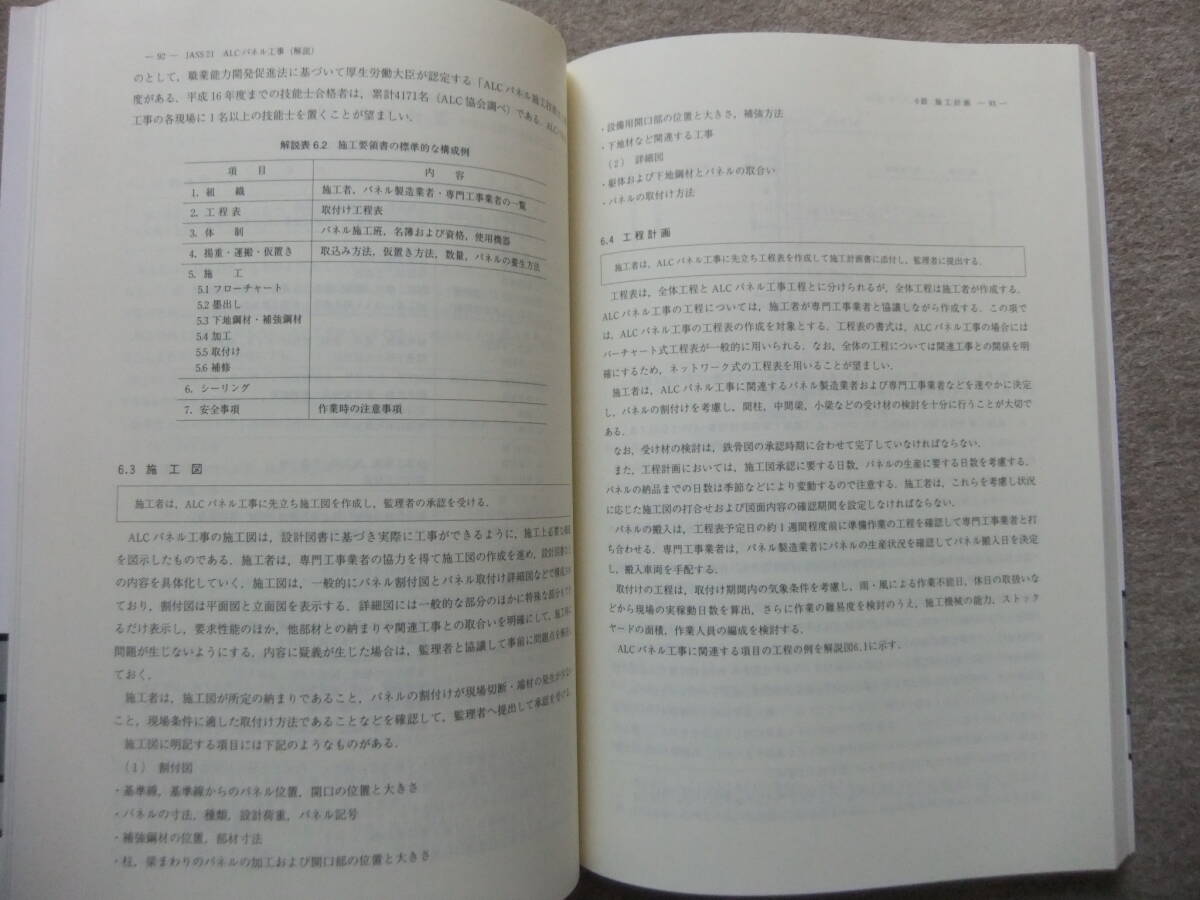 — 92 — JASS 21 ALCパネル工事（解説）
のとして，職業能力開発促進法に基づいて厚生労働大臣が認定する「ALCパネル施工技能士
度がある．平成16年度までの技能士合格者は，累計4171名（ALC協会調べ）である．ALC
工事の各現場に1名以上の技能士を置くことが望ましい．
解説表6.2 施工要領書の標準的な構成例
項目 内容
1. 組織 施工者，パネル製造業者・専門工事業者の一覧
2. 工程表 取付け工程表
3. 体制 パネル施工班，名簿および資格，使用機器
4. 揚重・運搬・仮置き 取込み方法，仮置き方法，数量，パネルの養生方法
5. 施工
5.1 フローチャート
5.2 墨出し
5.3 下地鋼材・補強鋼材
5.4 加工
5.5 取付け
5.6 補修
6. シーリング
7. 安全事項 作業時の注意事項
6.3 施工図
施工者は，ALCパネル工事に先立ち施工図を作成し，監理者の承認を受ける．
ALCパネル工事の施工図は，設計図書に基づき実際に工事ができるように，施工上必要な
を図示したものである．施工者は，専門工事業者の協力を得て施工図の作成を進め，設計図書
の内容を具体化していく．施工図は，一般的にパネル割付図とパネル取付け詳細図などで構成
ており，割付図は平面図と立面図を表示する．詳細図には一般的な部分のほかに特殊な部分も
るだけ表示し，要求性能のほか，他部材との納まりや関連工事との取合いを明確にして，施工時に
問題が生じないようにする．内容に疑義が生じた場合は，監理者と協議して事前に問題点を解決し
ておく．
施工者は，施工図が所定の納まりであること，パネルの割付けが現場切断・端材の発生が少ない
こと，現場条件に適した取付け方法であることなどを確認して，監理者へ提出して承認を受ける．
施工図に明記する項目には下記のようなものがある．
（1） 割付図
・基準線，基準線からのパネル位置，開口の位置と大きさ
・パネルの寸法，種類，設計荷重，パネル記号
・補強鋼材の位置，部材寸法
・柱，梁まわりのパネルの加工および開口部の位置と大きさ
6節 施工計画 — 93 —
・設備用開口部の位置と大きさ，補強方法
・下地材など関連する工事
（2） 詳細図
・躯体および下地鋼材とパネルの取合い
・パネルの取付け方法
6.4 工程計画
施工者は，ALCパネル工事に先立ち工程表を作成して施工計画書に添付し，監理者に提出する．
工程表は，全体工程とALCパネル工事工程とに分けられるが，全体工程は施工者が作成する．
ALCパネル工事の工程については，施工者が専門工事業者と協議しながら作成する．この項で
は，ALCパネル工事の工程表の作成を対象とする．工程表の書式は，ALCパネル工事の場合には
バーチャート式工程表が一般的に用いられる．なお，全体の工程については関連工事との関係を明
確にするため，ネットワーク式の工程表を用いることが望ましい．
施工者は，ALCパネル工事に関連するパネル製造業者および専門工事業者などを速やかに決定
し，パネルの割付けを考慮し，間柱，中間梁，小梁などの受け材の検討を十分に行うことが大切で
ある．
なお，受け材の検討は，鉄骨図の承認時期に合わせて完了していなければならない．
また，工程計画においては，施工図承認に要する日数，パネルの生産に要する日数を考慮する．
パネルの納品までの日数は季節などにより変動するので注意する．施工者は，これらを考慮し状況
に応じた施工図の打合せおよび図面内容の確認期間を設定しなければならない．
パネルの搬入は，工程表予定日の約1週間程度前に準備作業の工程を確認して専門工事業者と打
ち合わせる．専門工事業者は，パネル製造業者にパネルの生産状況を確認してパネル搬入日を決定
し，搬入車両を手配する．
取付けの工程は，取付け期間内の気象条件を考慮し，雨・風による作業不能日，休日の取扱いな
どから現場の実稼動日数を算出，さらに作業の難易度を検討のうえ，施工機械の能力，ストック
ヤードの面積，作業人員の編成を検討する．
ALCパネル工事に関連する項目の工程の例を解説図6.1に示す．